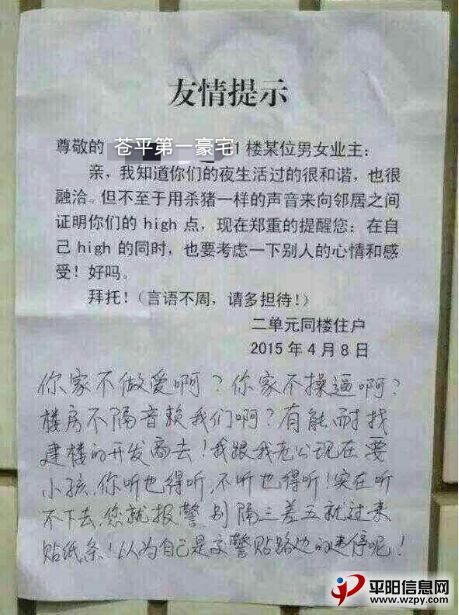 友情提示
尊敬的 苍平第一豪宅 1楼某位男女业主：
亲，我知道你们的夜生活过的很和谐，也很
融洽。但不至于用杀猪一样的声音来向邻居之间
证明你们的 high 点，现在郑重的提醒您：在自
己 high 的同时，也要考虑一下别人的心情和感
受！好吗。
拜托！（言语不周，请多担待！）
二单元同楼住户
2015 年 4 月 8 日
你家不做爱啊？你家不操逼啊？
楼房不隔音赖我们啊？有能耐找
建楼的开发商去！我跟我老公现在要
小孩，你听也得听，不听也得听！实在听
不下去，您就报警，别隔三差五就过来
贴纸条！以为自己是交警贴路边的违停呢！
平阳信息网
www.wzpy.com